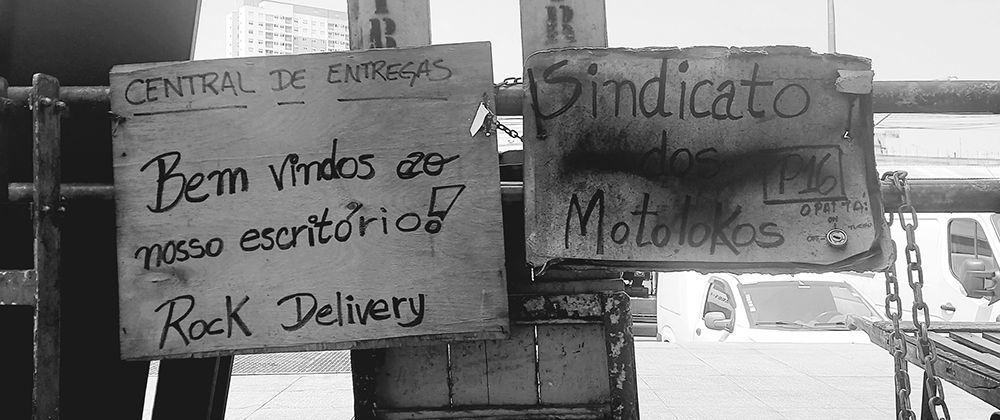 CENTRAL DE ENTREGAS
Bem vindos ao
nosso escritório!
Rock Delivery
Sindicato
dos
P16
Motolokos
ON
OFF